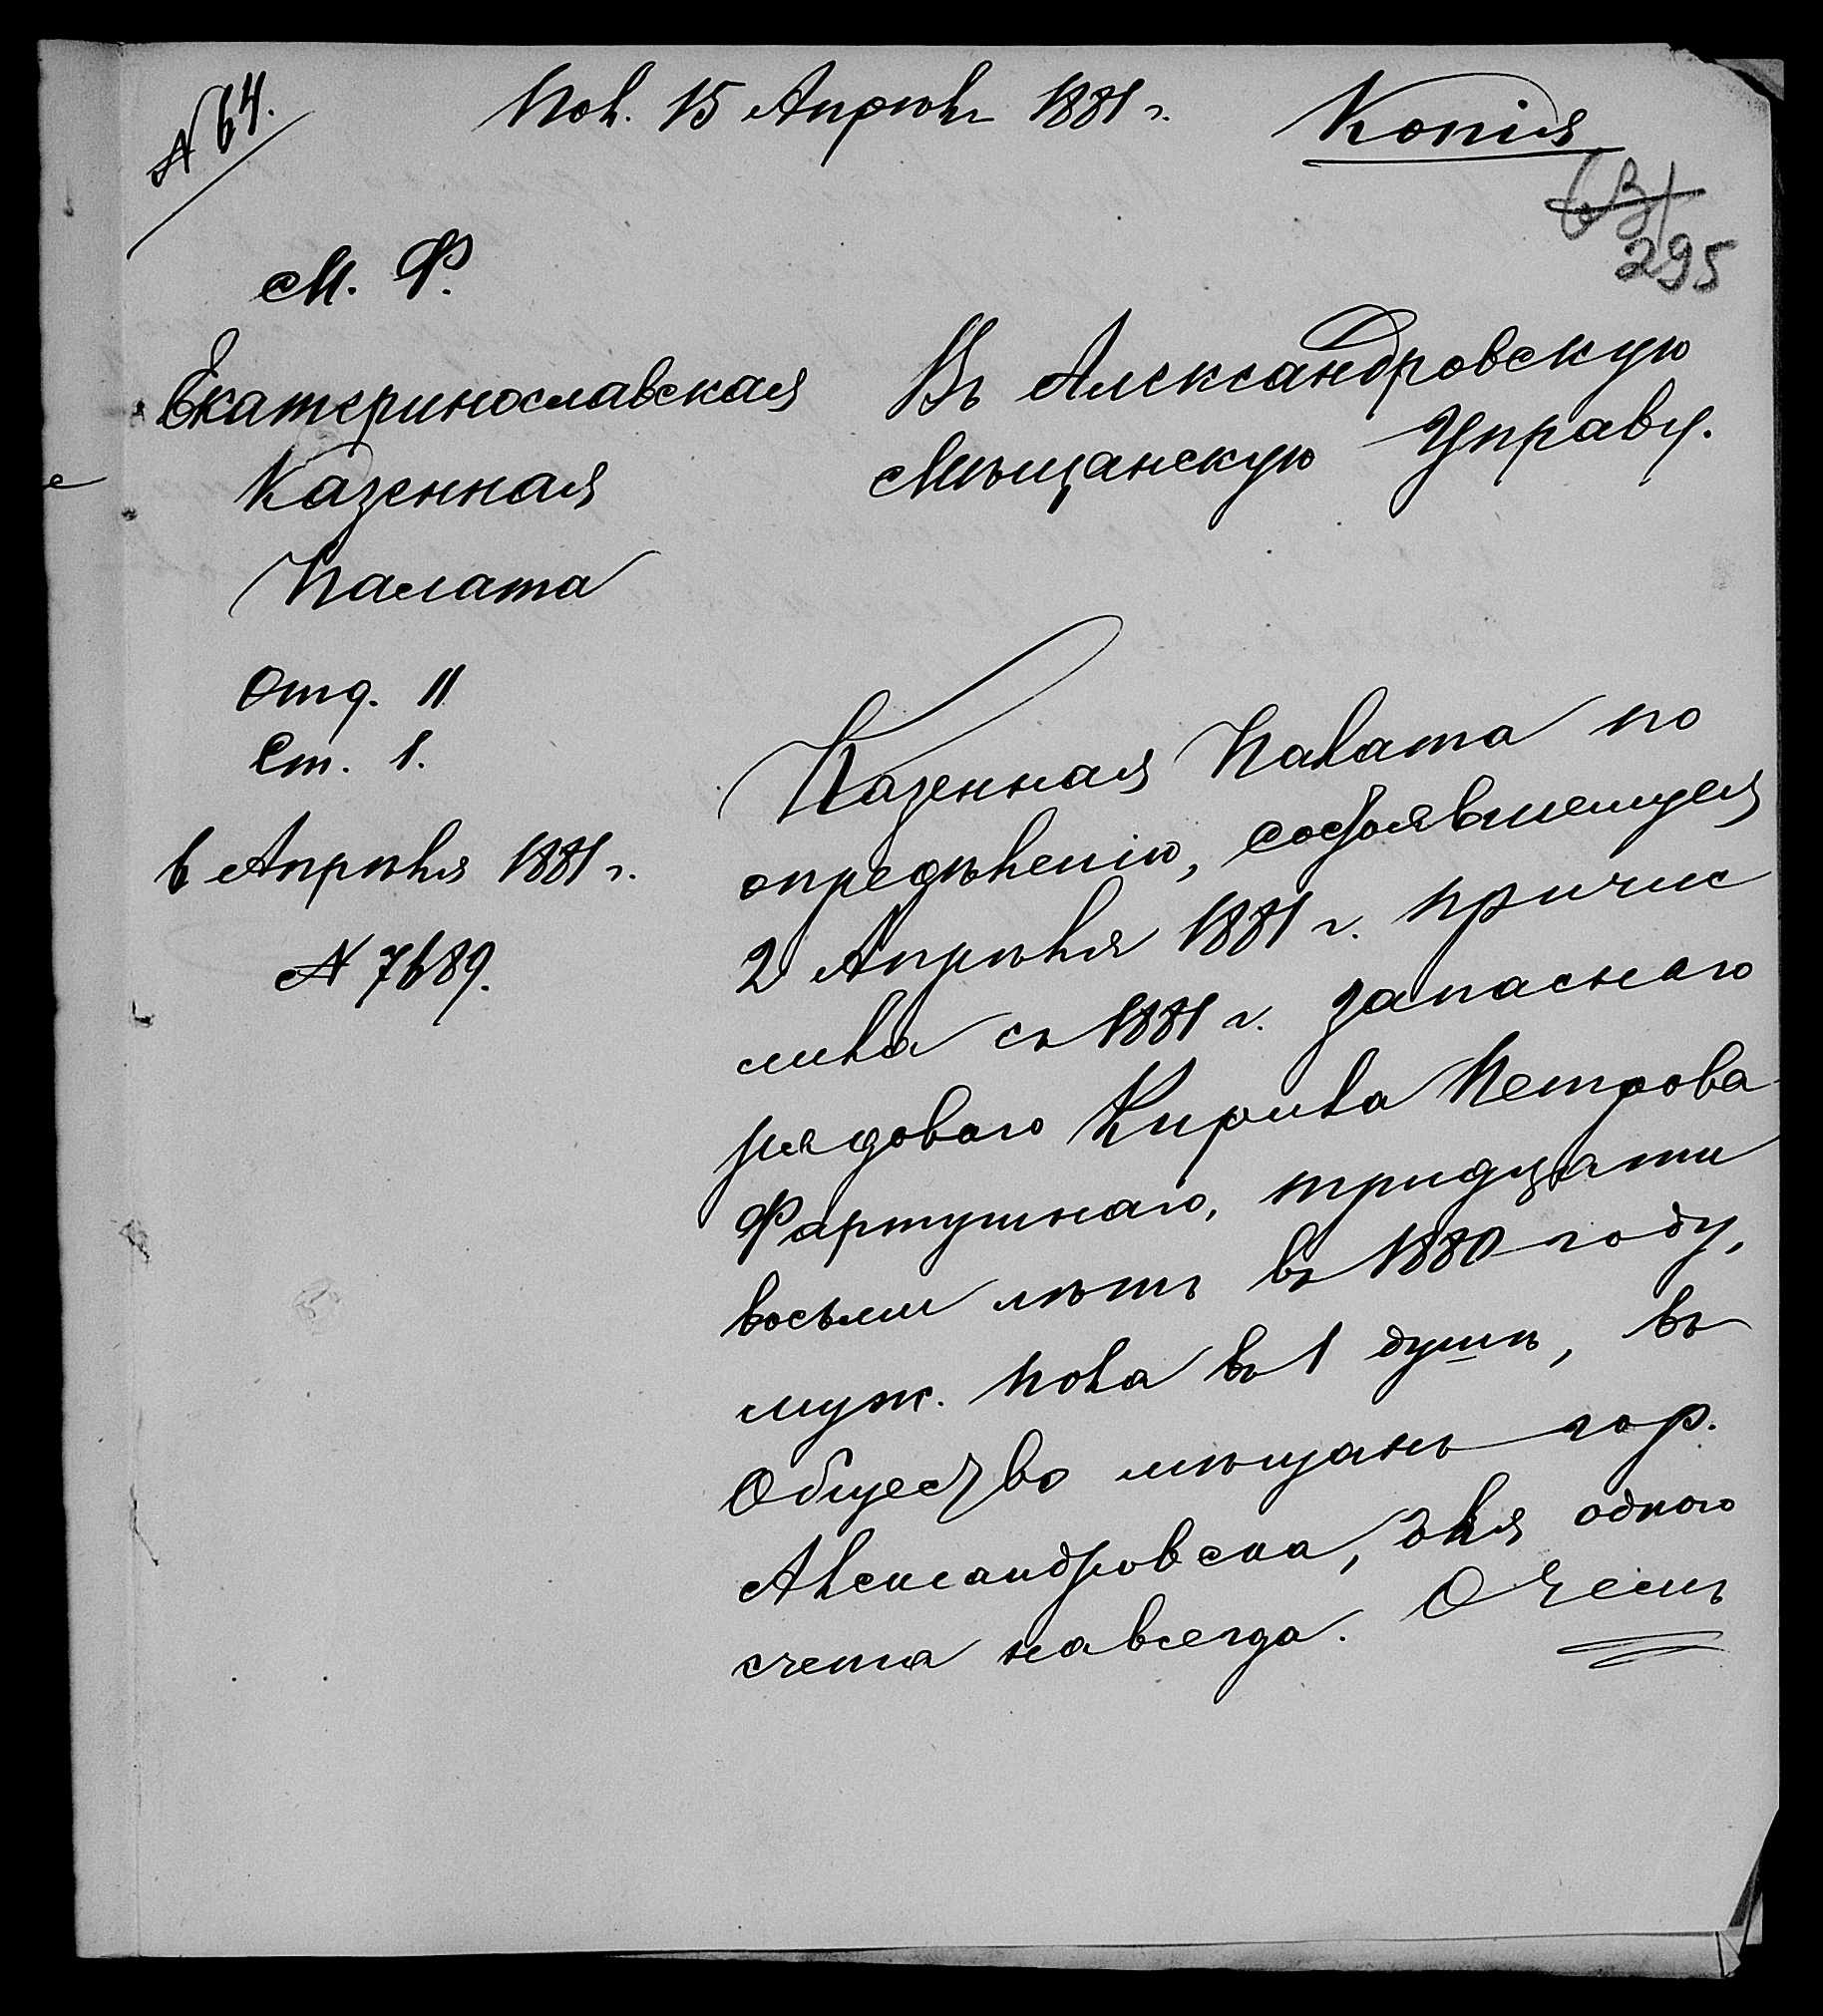 № 64.
Пол. 15 Апрѣль 1881 г.
Копія
295
М. Ф.
Екатеринославская
Казенная
Палата
Отд. II
Ст. 1.
6 Апрѣля 1881 г.
№ 7689.
Въ Александровскую
Мѣщанскую Управу.
Казенная Палата по
опредѣленію, состоявшемуся
2 Апрѣля 1881 г. причис
лила съ 1881 г. запаснаго
рядоваго Кирила Петрова
Фартушнаго, тридцати
восьми лѣтъ въ 1880 году,
муж. пола въ 1 душѣ, въ
Общество мѣщанъ гор.
Александровска, для одного
счета навсегда. О чемъ